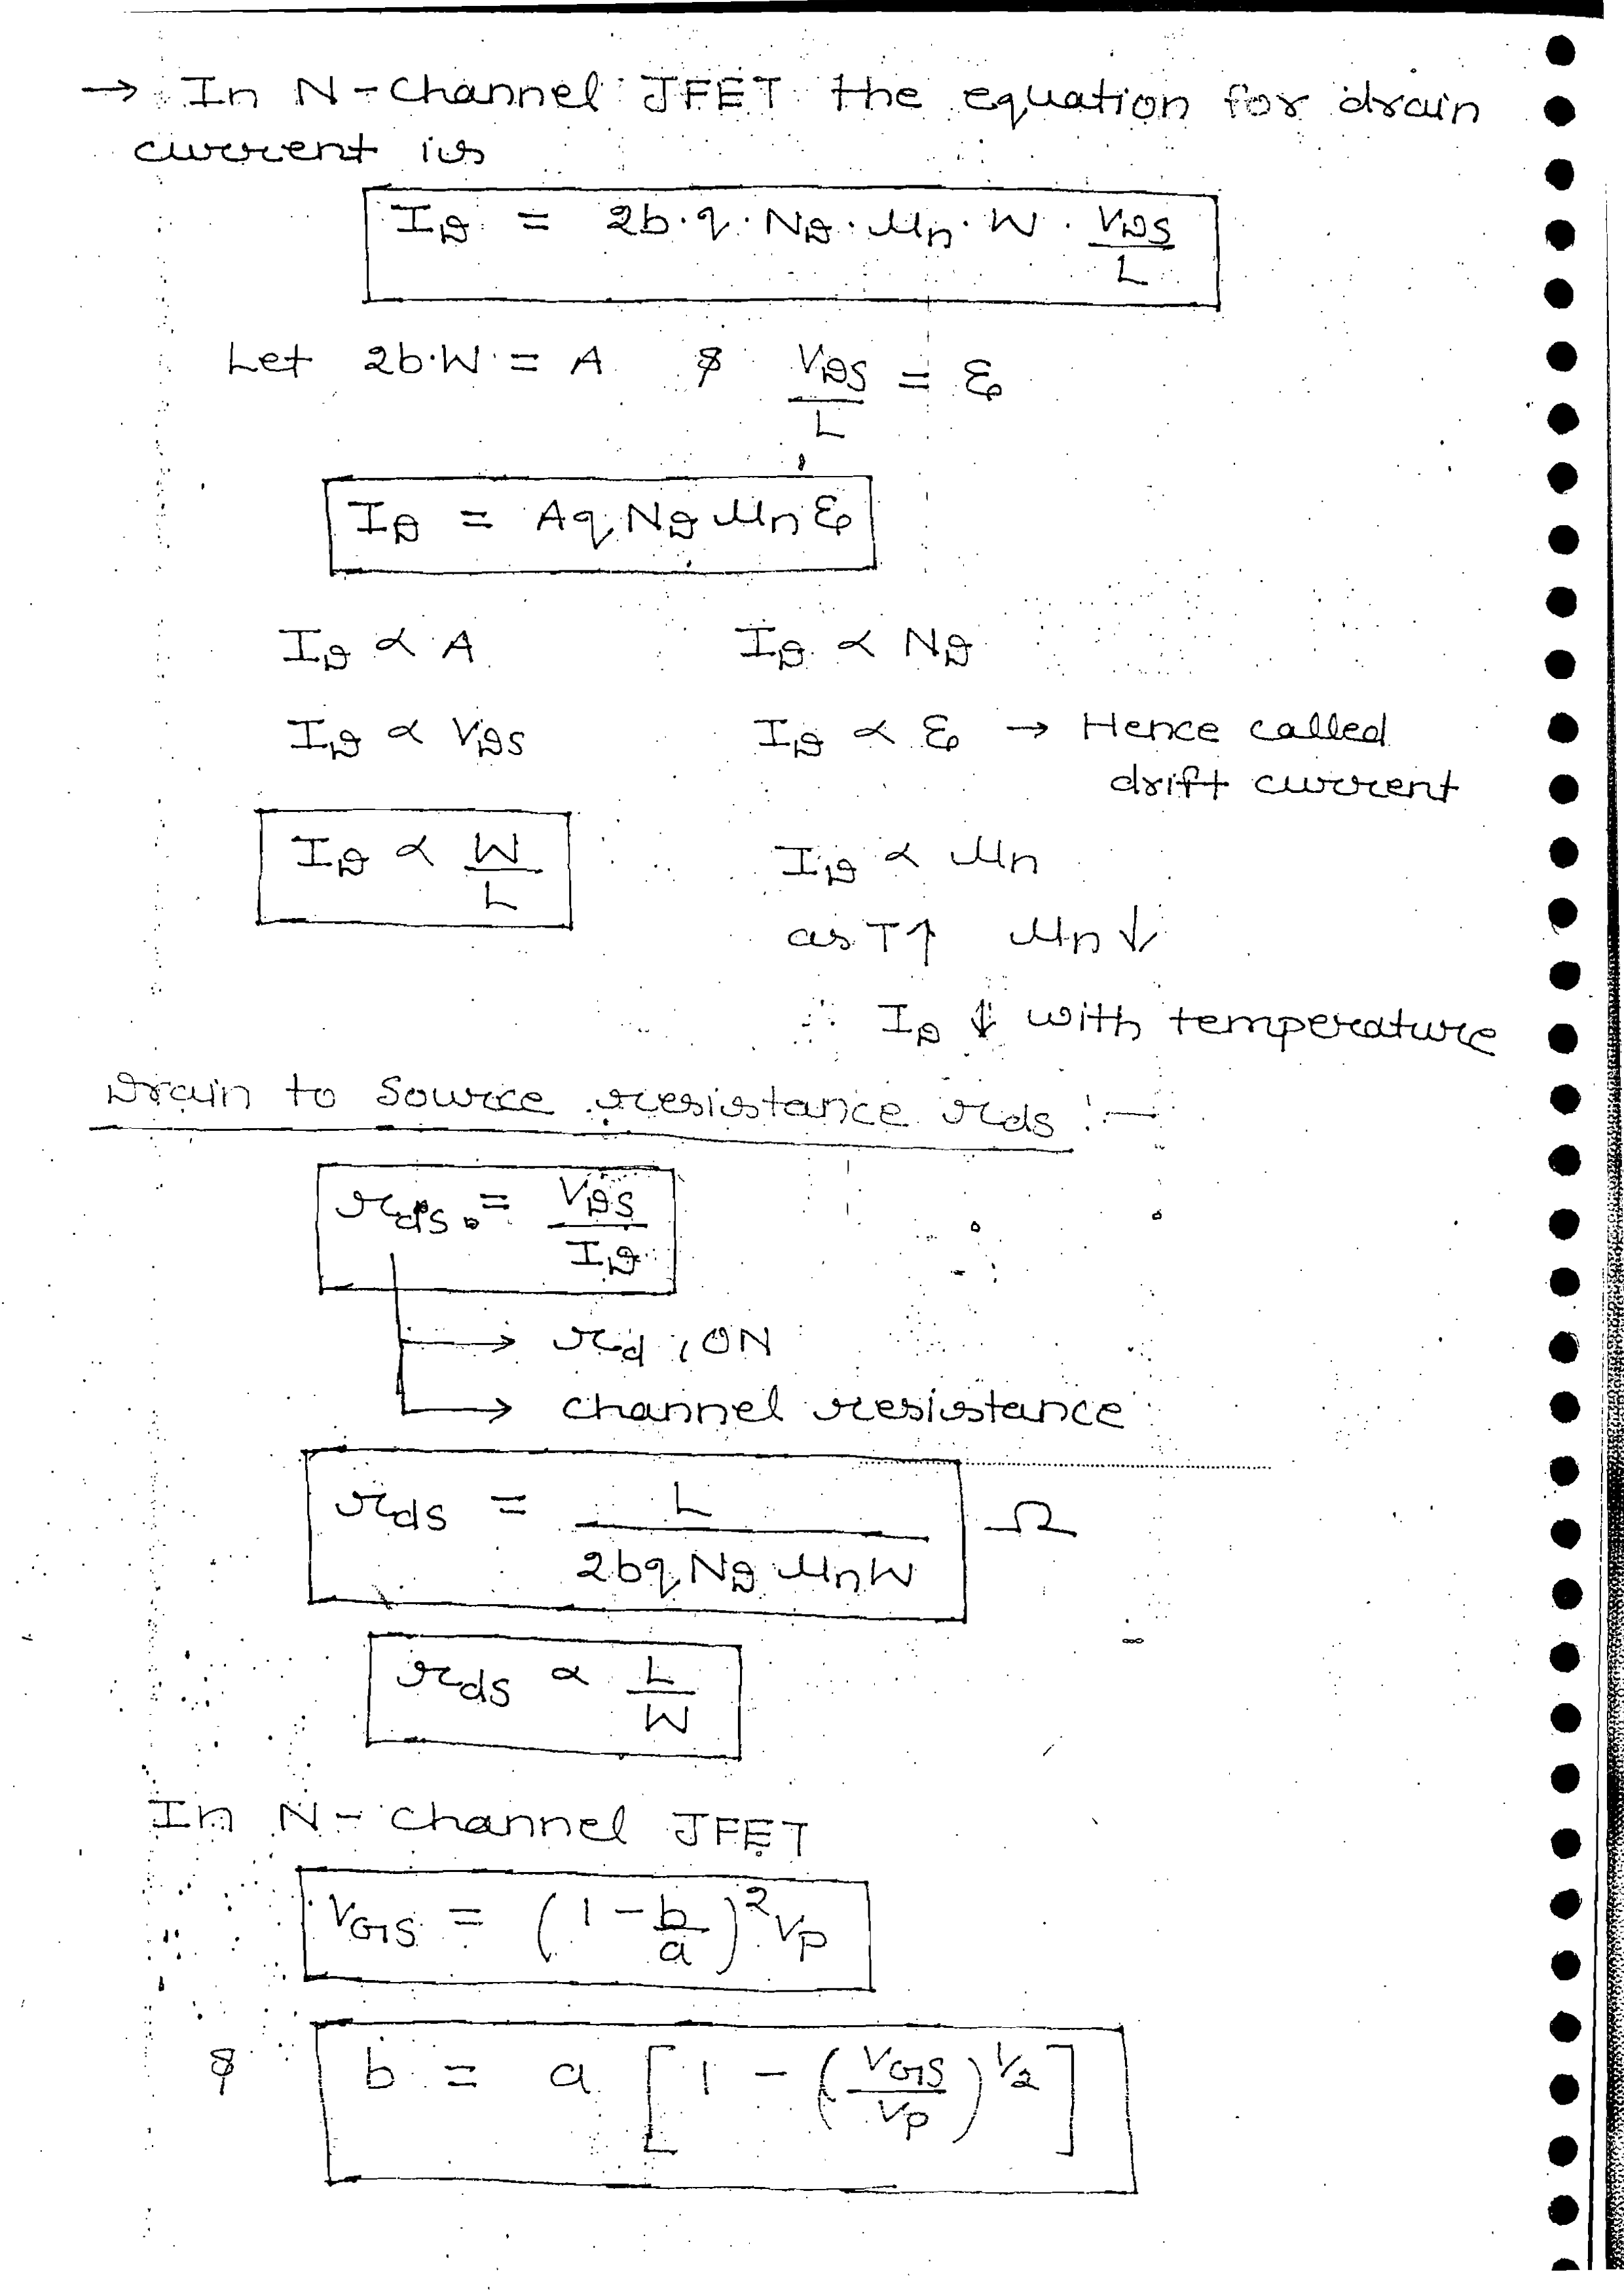 → In N-channel JFET the equation for drain
current is
I_D = 2b·q·N_D·μn·W·V_DS/L
Let 2b·W = A & V_DS/L = ε
I_D = A q N_D μn ε
I_D ∝ A I_D ∝ N_D
I_D ∝ V_DS I_D ∝ ε → Hence called
drift current
I_D ∝ W/L I_D ∝ μn
as T↑ μn↓
∴ I_D ↓ with temperature
Drain to source resistance rds :-
rds = V_DS/I_D
→ rd, ON
→ channel resistance
rds = L/(2bq N_D μn W) Ω
rds ∝ L/W
In N-channel JFET
V_GS = (1 - b/a)² V_P
& b = a [1 - (V_GS/V_P)^1/2]